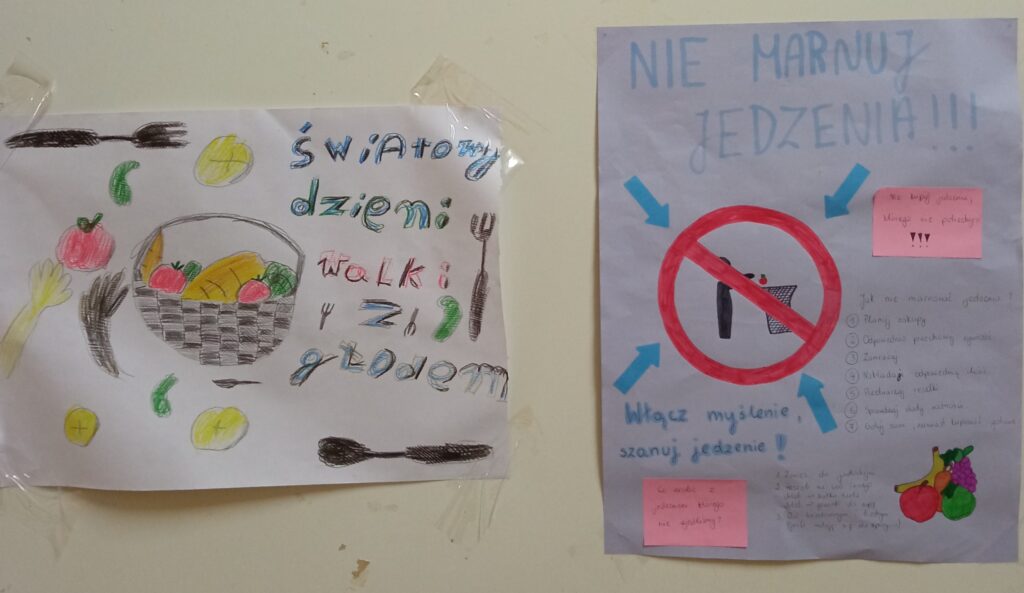 światowy
dzieni
walki
z
głodem
NIE MARNUJ
JEDZENIA!!!
Nie kupuj jedzenia,
którego nie potrzebujesz
!!!
Jak nie marnować jedzenia?
1 Planuj zakupy
2 Odpowiednio przechowuj żywność
3 Zamrażaj
4 Nakładaj odpowiednią ilość
5
6 Sprawdzaj daty
7 Gotuj sam, zamiast kupować gotowe
Włącz myślenie,
szanuj jedzenie!
Co zrobić z
jedzeniem którego
nie zjedliśmy?
1. Zanieś do jadłodzielni
2.
3.